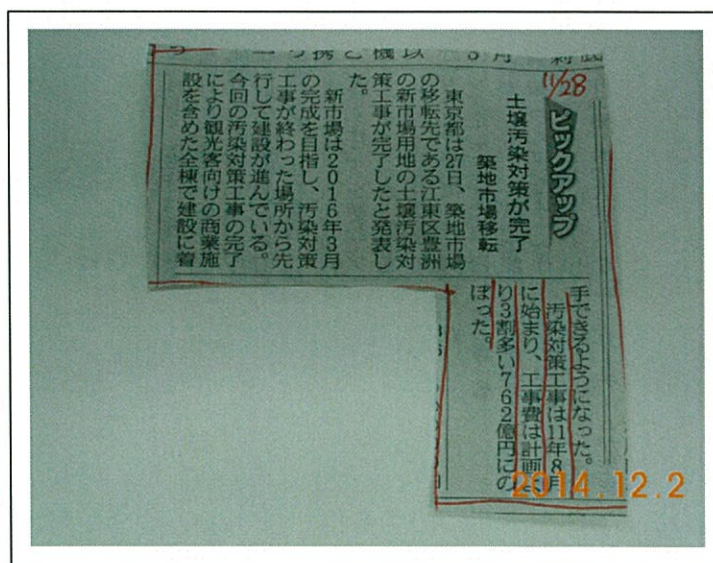 11/28
ピックアップ
土壌汚染対策が完了
築地市場移転
東京都は27日、築地市場
の移転先である江東区豊洲
の新市場用地の土壌汚染対
策工事が完了したと発表し
た。
新市場は2016年3月
の完成を目指し、汚染対策
工事が終わった場所から先
行して建設が進んでいる。
今回の汚染対策工事の完了
により観光客向けの商業施
設を含めた全棟で建設に着
手できるようになった。
汚染対策工事は11年8月
に始まり、工事費は計画よ
り3割多い762億円にの
ぼった。
2014.12.2